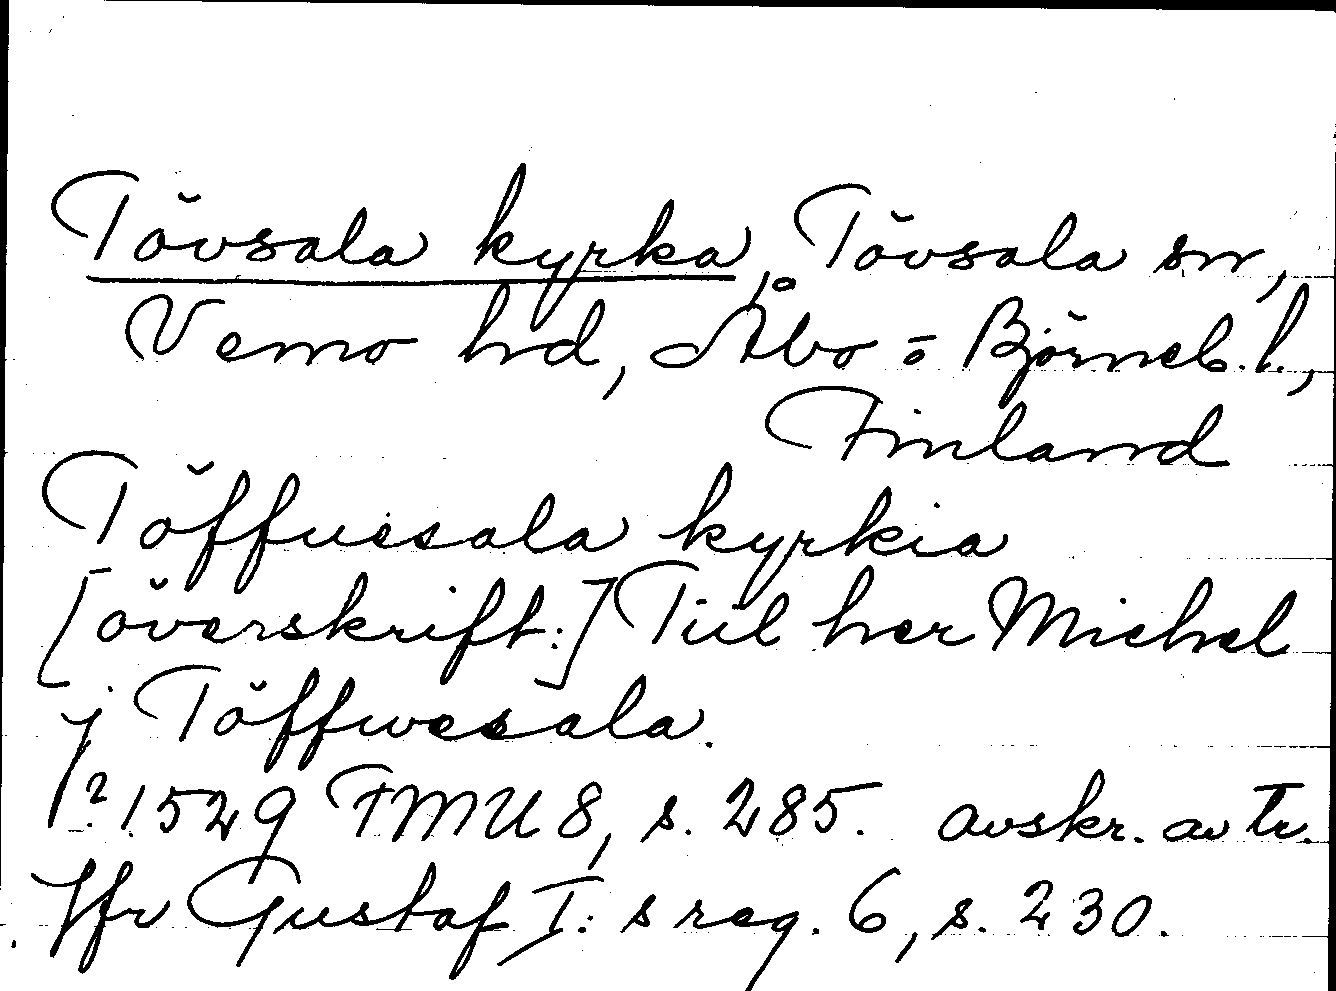 Tövsala kyrka, Tövsala sn,
Vemo hd, Åbo o Björneb. l.,
Finland
Töffuesala kyrkia
[överskrift:] Tiil her Michel
j Töffwesala.
[?] 1529 FMU 8, s. 285. avskr. av tr.
Jfr Gustaf I:s reg. 6, s. 230.